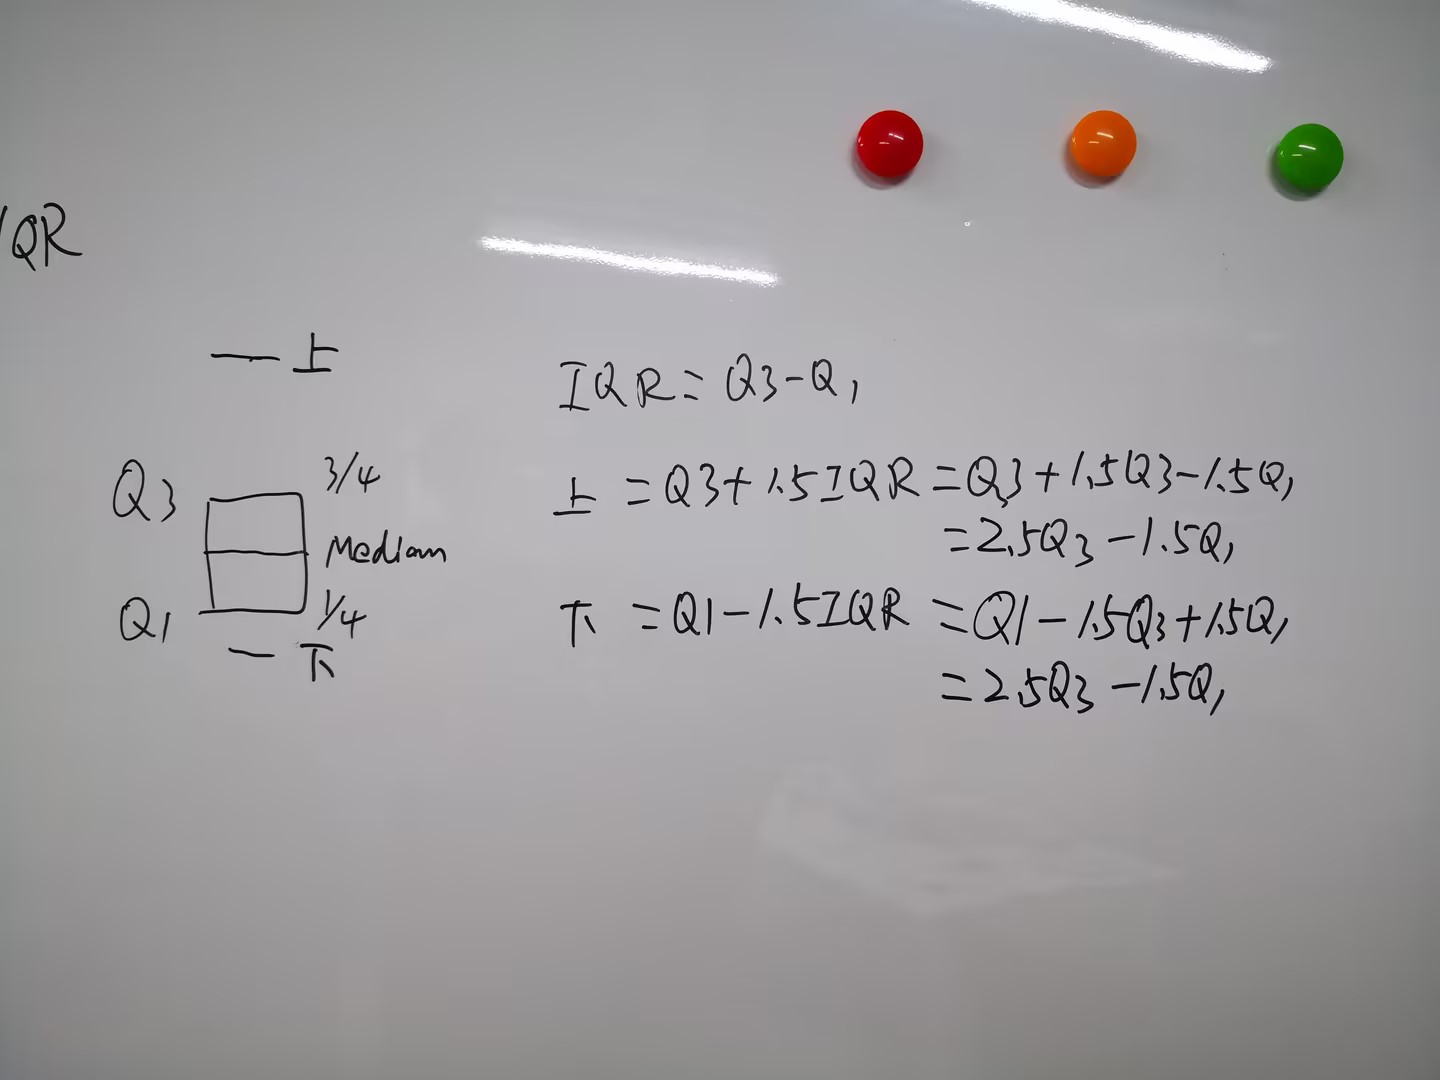 IQR
上
Q3
3/4
Median
Q1
1/4
下
IQR = Q3-Q1
上 = Q3+1.5IQR = Q3+1.5Q3-1.5Q1
= 2.5Q3-1.5Q1
下 = Q1-1.5IQR = Q1-1.5Q3+1.5Q1
= 2.5Q3-1.5Q1